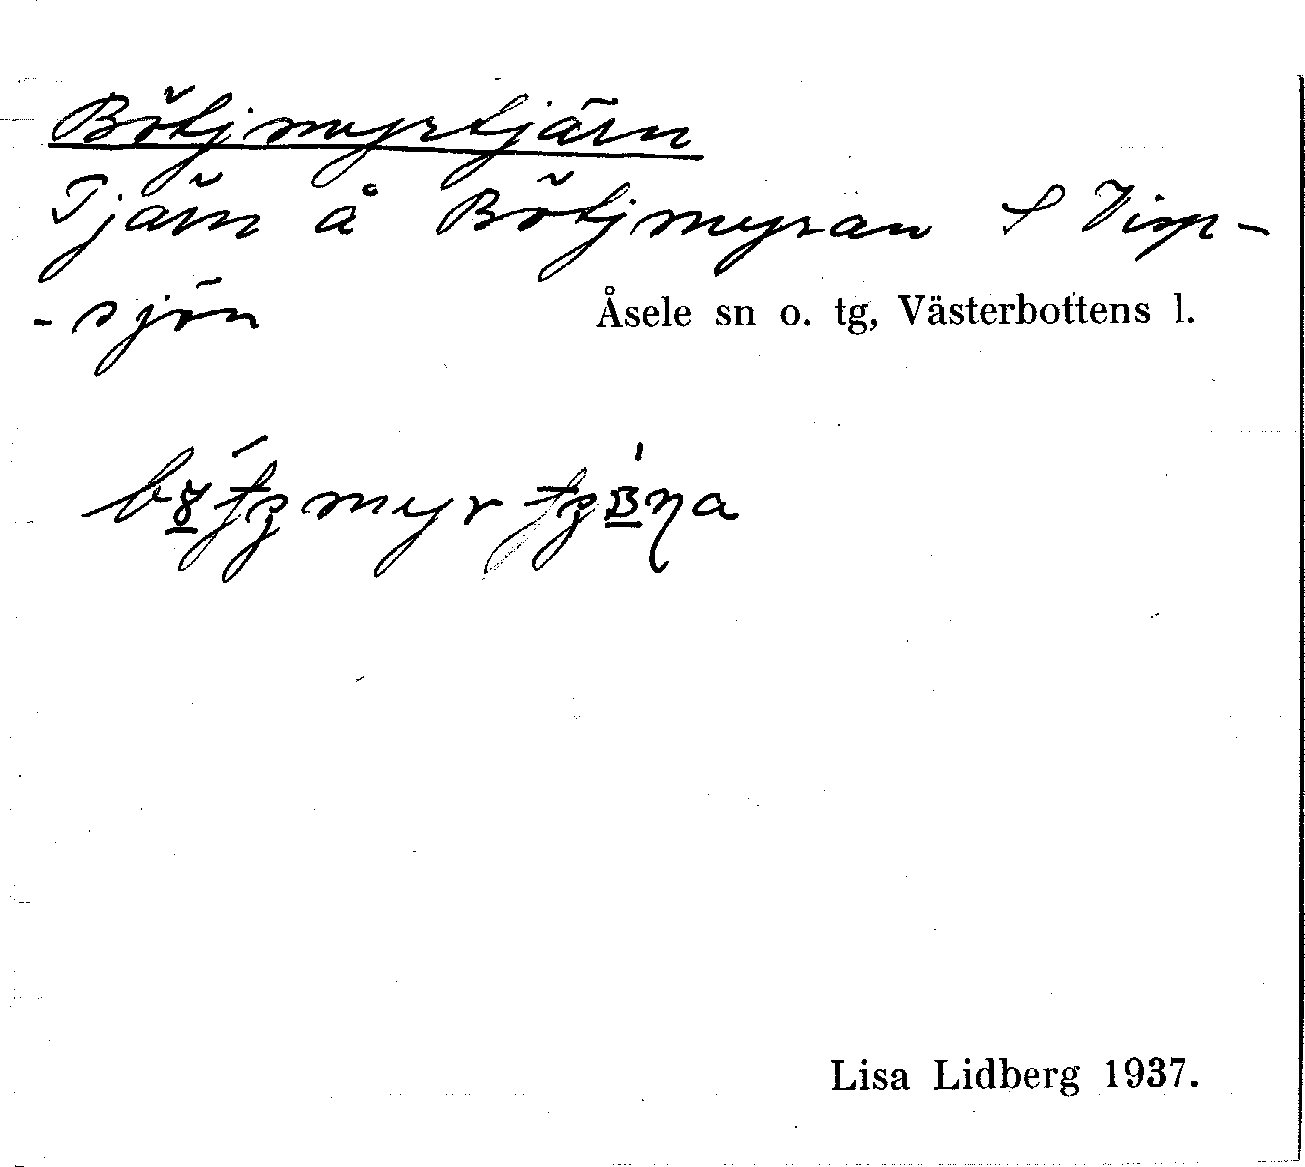 Bötjmyrtjärn
Tjärn å Bötjmyran S Visp-
-sjön
Åsele sn o. tg, Västerbottens l.
Lisa Lidberg 1937.